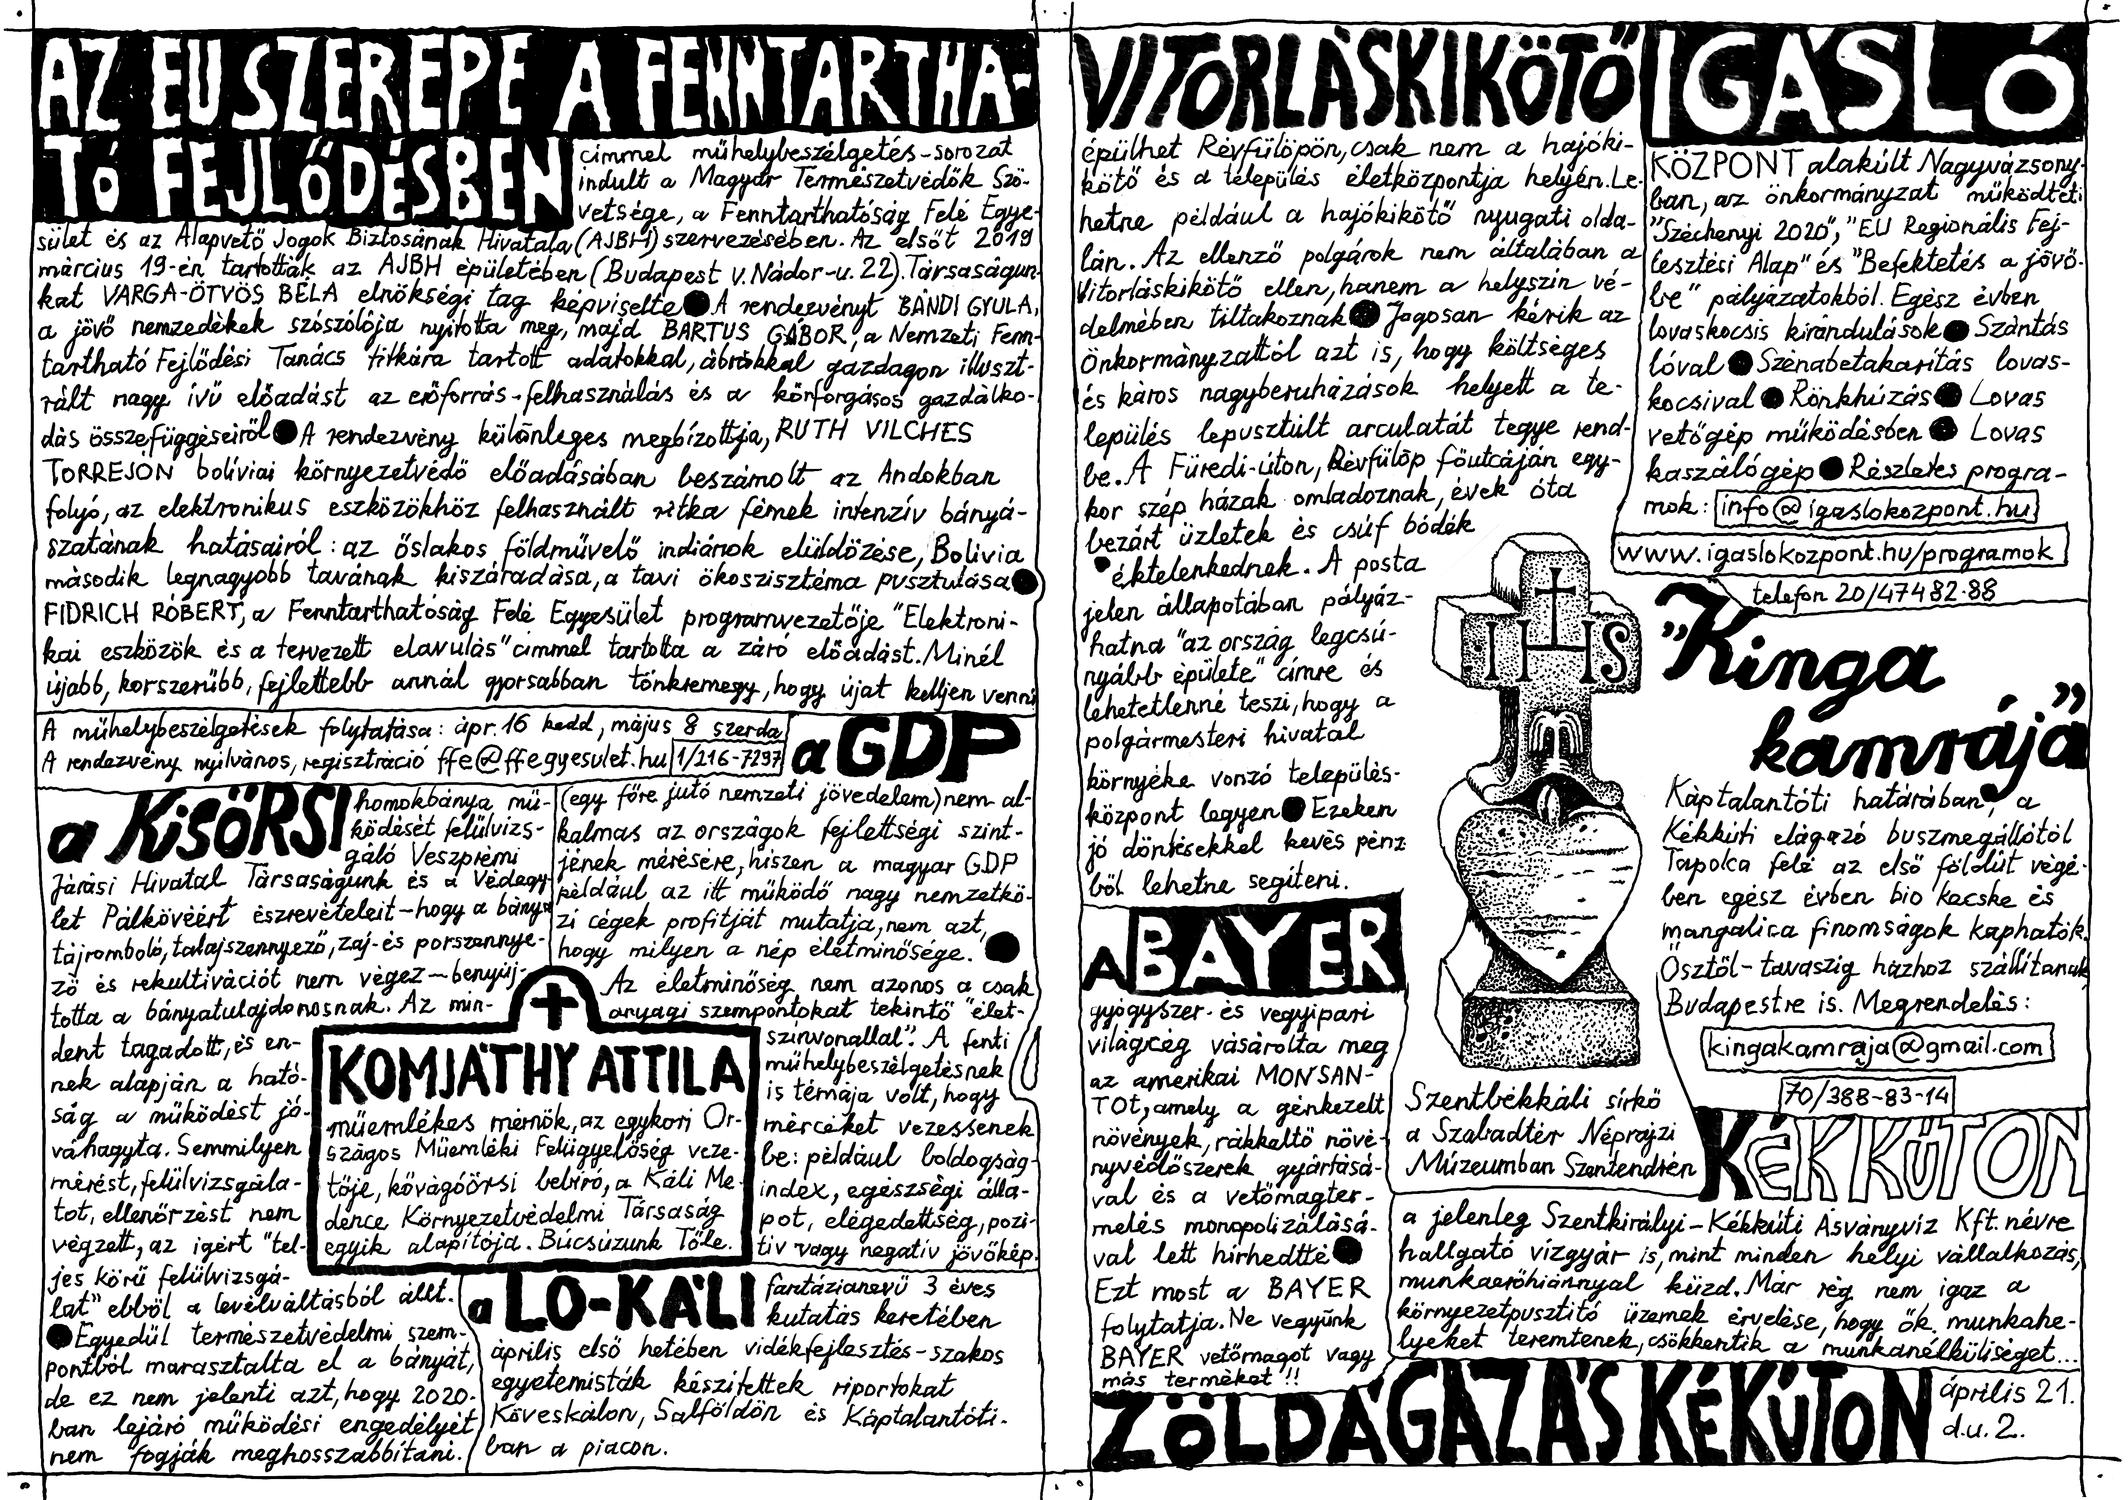 AZ EU SZEREPE A FENNTARTHA-
TÓ FEJLŐDÉSBEN
címmel műhelybeszélgetés-sorozat
indult a Magyar Természetvédők Szö-
vetsége, a Fenntarthatóság Felé Egye-
sület és az Alapvető Jogok Biztosának Hivatala (AJBH) szervezésében. Az elsőt 2019
március 19-én tartották az AJBH épületében (Budapest V. Nádor-u. 22). Társaságun-
kat VARGA-ÖTVÖS BÉLA elnökségi tag képviselte ● A rendezvényt BÁNDI GYULA,
a jövő nemzedékek szószólója nyitotta meg, majd BARTUS GÁBOR, a Nemzeti Fenn-
tartható Fejlődési Tanács titkára tartott adatokkal, ábrákkal gazdagon illuszt-
rált nagy ívű előadást az erőforrás-felhasználás és a körforgásos gazdálko-
dás összefüggéseiről ● A rendezvény különleges megbízottja, RUTH VILCHES
TORREJÓN bolíviai környezetvédő előadásában beszámolt az Andokban
folyó, az elektronikus eszközökhöz felhasznált ritka fémek intenzív bányá-
szatának hatásairól: az őslakos földművelő indiánok elüldözése, Bolívia
második legnagyobb tavának kiszáradása, a tavi ökoszisztéma pusztulása ●
FIDRICH RÓBERT, a Fenntarthatóság Felé Egyesület programvezetője "Elektroni-
kai eszközök és a tervezett elavulás" címmel tartotta a záró előadást. Minél
újabb, korszerűbb, fejlettebb annál gyorsabban tönkremegy, hogy újat kelljen venni
A műhelybeszélgetések folytatása: ápr. 16 kedd, május 8 szerda
A rendezvény nyilvános, regisztráció ffe@ffegyesulet.hu 1/216-7297
a GDP
(egy főre jutó nemzeti jövedelem) nem al-
kalmas az országok fejlettségi szint-
jének mérésére, hiszen a magyar GDP
például az itt működő nagy nemzetkö-
zi cégek profitját mutatja, nem azt,
hogy milyen a nép életminősége. ●
Az életminőség nem azonos a csak
anyagi szempontokat tekintő "élet-
színvonallal". A fenti
műhelybeszélgetésnek
is témája volt, hogy
mércéket vezessenek
be: például boldogság-
index, egészségi álla-
pot, elégedettség, pozi-
tív vagy negatív jövőkép.
a KISÖRSI
homokbánya mű-
ködését felülvizs-
gáló Veszprémi
Járási Hivatal Társaságunk és a Védegy-
let Pálkövéért észrevételeit – hogy a bánya
tájromboló, talajszennyező, zaj- és porszennye-
ző és rekultivációt nem végez – benyúj-
totta a bányatulajdonosnak. Az min-
dent tagadott, és en-
nek alapján a ható-
ság a működést jó-
váhagyta. Semmilyen
mérést, felülvizsgála-
tot, ellenőrzést nem
végzett, az ígért "tel-
jes körű felülvizsgá-
lat" ebből a levélváltásból állt.
● Egyedül természetvédelmi szem-
pontból marasztalta el a bányát,
de ez nem jelenti azt, hogy 2020-
ban lejáró működési engedélyét
nem fogják meghosszabbítani.
KOMJÁTHY ATTILA
műemlékes mérnök, az egykori Or-
szágos Műemléki Felügyelőség veze-
tője, kővágóörsi bebíró, a Káli Me-
dence Környezetvédelmi Társaság
egyik alapítója. Búcsúzunk Tőle.
a LO-KÁLI
fantázianevű 3 éves
kutatás keretében
április első hetében vidékfejlesztés-szakos
egyetemisták készítettek riportokat
Köveskálon, Salföldön és Káptalantóti-
ban a piacon.
VITORLÁSKIKÖTŐ
épülhet Révfülöpön, csak nem a hajóki-
kötő és a település életközpontja helyén. Le-
hetne például a hajókikötő nyugati olda-
lán. Az ellenző polgárok nem általában a
Vitorláskikötő ellen, hanem a helyszín vé-
delmében tiltakoznak ● Jogosan kérik az
Önkormányzattól azt is, hogy költséges
és káros nagyberuházások helyett a te-
lepülés lepusztult arculatát tegye rend-
be. A Füredi-úton, Révfülöp főutcáján egy-
kor szép házak omladoznak, évek óta
bezárt üzletek és csúf bódék
éktelenkednek. A posta
jelen állapotában pályáz-
hatna "az ország legcsú-
nyább épülete" címre és
lehetetlenné teszi, hogy a
polgármesteri hivatal
környéke vonzó település-
központ legyen ● Ezeken
jó döntésekkel kevés pénz
ből lehetne segíteni.
A BAYER
gyógyszer- és vegyipari
világcég vásárolta meg
az amerikai MONSAN-
TOt, amely a génkezelt
növények, rákkeltő növé-
nyvédőszerek gyártásá-
val és a vetőmagter-
melés monopolizálásá-
val lett hírhedtté ●
Ezt most a BAYER
folytatja. Ne vegyünk
BAYER vetőmagot vagy
más terméket!!
IGÁSLÓ
KÖZPONT alakúlt Nagyvázsony-
ban, az önkormányzat működteti
"Széchenyi 2020", "EU Regionális Fej-
lesztési Alap" és "Befektetés a jövő-
be" pályázatokból. Egész évben
lovaskocsis kirándulások ● Szántás
lóval ● Szénabetakarítás lovas-
kocsival ● Rönkhúzás ● Lovas
vetőgép működésben ● Lovas
kaszálógép ● Részletes progra-
mok: info@igaslokozpont.hu
www.igaslokozpont.hu/programok
telefon 20/474 82-88
IHS
"Kinga
kamrája"
Káptalantóti határában, a
Kékkúti elágazó buszmegállótól
Tapolca felé az első földút végé-
ben egész évben bio kecske és
mangalica finomságok kaphatók.
Ősztől-tavaszig házhoz szállítanak
Budapestre is. Megrendelés:
kingakamraja@gmail.com
70/388-83-14
Szentbékkáli sírkő
a Szabadtéri Néprajzi
Múzeumban Szentendrén
KÉKKÚTON
a jelenleg Szentkirályi-Kékkúti Ásványvíz Kft. névre
hallgató vízgyár is, mint minden helyi vállalkozás,
munkaerőhiánnyal küzd. Már rég nem igaz a
környezetpusztító üzemek érvelése, hogy ők munkahe-
lyeket teremtenek, csökkentik a munkanélküliséget...
ZÖLDÁGAZÁS KÉKÚTON
április 21.
d.u. 2.